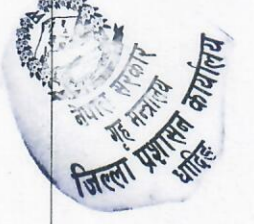 नेपाल सरकार
गृह मन्त्रालय
जिल्ला प्रशासन कार्यालय
धादिङ्ग